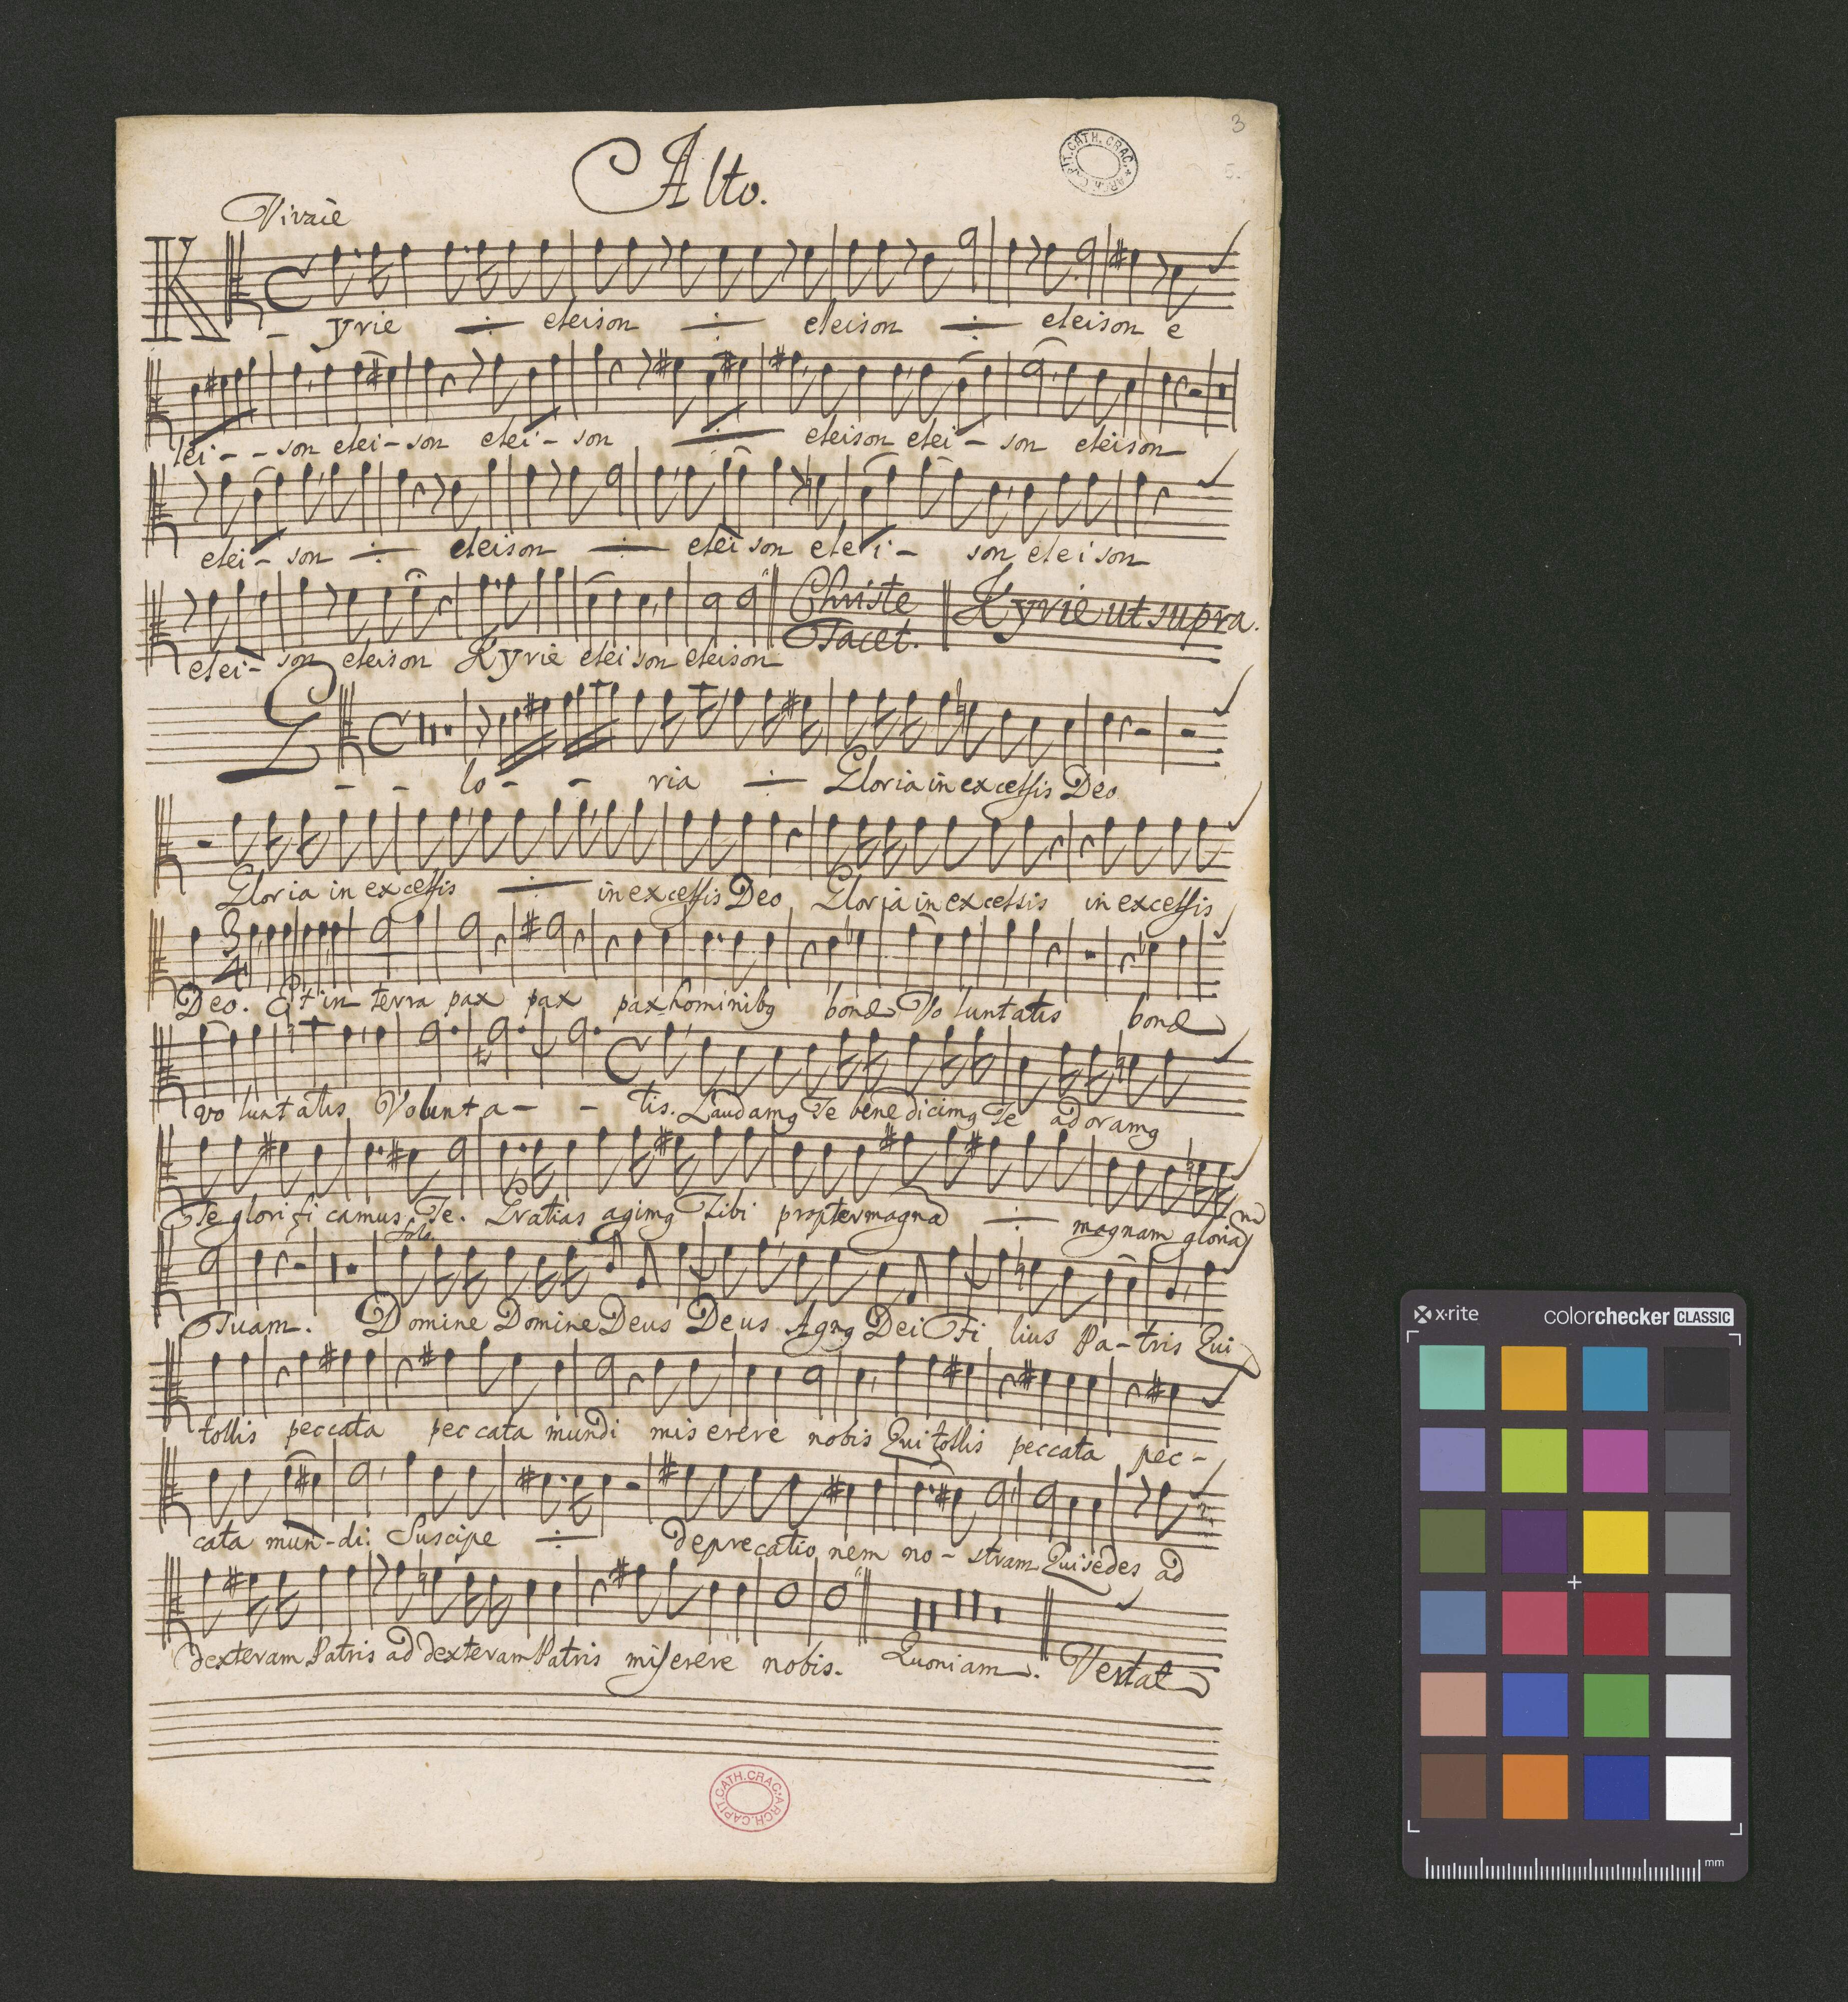 3
Alto.
ARCH. CAPIT. CATH. CRAC.
Kyrie ÷ eleison ÷ eleison ÷ eleison e
lei - - son elei - son elei - son ÷ eleison elei - son eleison
elei - son ÷ eleison ÷ elei son elei - son eleison
elei - son eleison Kyrie eleison eleison Christe Tacet. Kyrie ut supra.
Glo - - ria ÷ Gloria in excessis Deo
Gloria in excessis ÷ in excessis Deo Gloria in excessis in excessis
Deo. 3/4 Et in terra pax pax pax hominibg bonæ Voluntatis bonæ
voluntatis Volunta - - tis. Laudamg Te benedicimg Te adoramg
Te glorificamus Te. Gratias agimg Tibi propter magnã ÷ magnam gloriã
Solo
Tuam. Domine Domine Deus Deus Agng Dei Filius Pa - tris Qui
tollis peccata peccata mundi miserere nobis Qui tollis peccata pec -
cata mun - di: Suscipe ÷ deprecationem no - stram Qui sedes ad
dexteram Patris ad dexteram Patris miserere nobis. Quoniam. Vertat
ARCH. CAPIT. CATH. CRAC.
x-rite colorchecker CLASSIC
mm